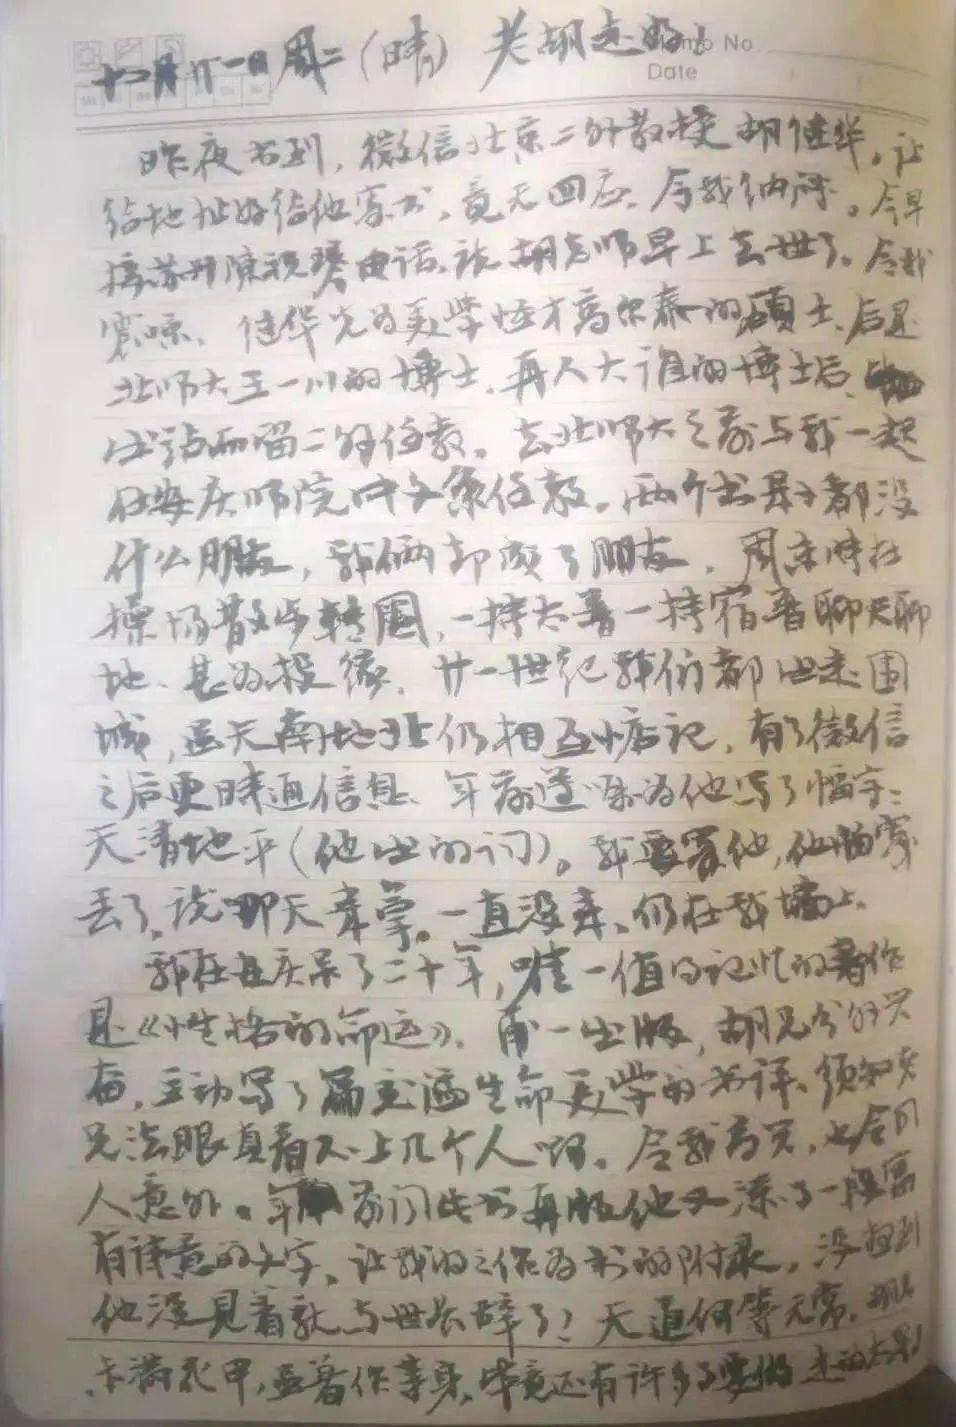 Memo No
Date
十二月廿一日周二（晴）老胡走好！
昨夜书到，微信北京二外教授胡继华，让
给地址好给他寄书，竟无回应，令我纳闷。今早
接苏州陈祝琴电话，说胡老师早上去世了。令我
震惊。继华先为美学怪才高尔泰的硕士，后是
北师大王一川的博士，再人大谁的博士后，
出站而留二外任教。去北师大之前与我一起
在安庆师院中文系任教。两个书呆子都没
什么朋友，我俩却成了朋友，周末时在
操场散步转圈，一持太普一持宿普聊天聊
地，甚为投缘。廿一世纪我们都出走围
城，虽天南地北仍相互惦记，有了微信
之后更时通信息，年前遵嘱为他写了幅字：
天清地平（他出的词）。我要寄他，他怕寄
丢了，说哪天来拿。一直没来，仍在我墙上。
我在安庆呆了二十年，唯一值得记忆的著作
是《性格的命运》。甫一出版，胡兄分外兴
奋，主动写了篇充满生命美学的书评。须知老
兄法眼真看不上几个人啊。令我高兴，也令同
人意外。年前闻此书再版他又添了一段富
有诗意的文字，让我将之作为书的附录，没想到
他没见着就与世长辞了！天道何等无常，胡兄
未满花甲，虽著作等身，毕竟还有许多事要做，走的太早！